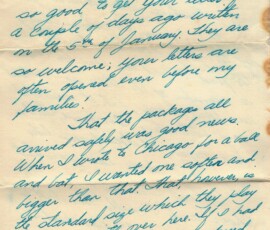 so good to get your letter
a couple of days ago written
on the 5th of January. They are
so welcome; your letters are
often opened even before my
families!
That the packages all
arrived safely was good news.
When I wrote to Chicago for a ball
and bat I wanted one softer and
bigger than that. That, however is
the standard size which they play
over here. If I had